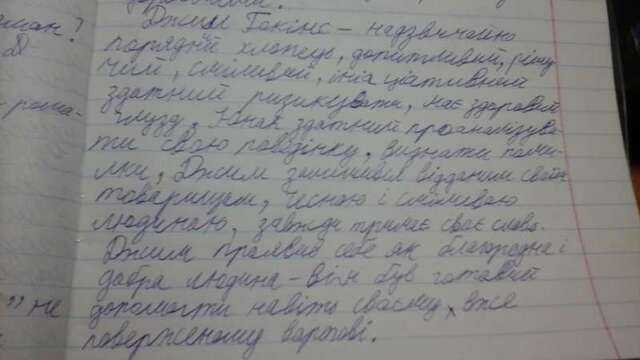 Джим Гокінс – надзвичайно
порядний хлопець, допитливий, рішу-
чий, сміливий, ініціативний
здатний ризикувати, має здоровий
глузд. Юнак здатний проаналізува-
ти свою поведінку, визнати поми-
лки, Джим залишився відданим своїм
товаришам, чесною і сміливою
людиною, завжди тримає своє слово.
Джим проявив себе як благородна і
добра людина – він був готовий
допомогти навіть своєму, вже
поверженому ворогові.
не